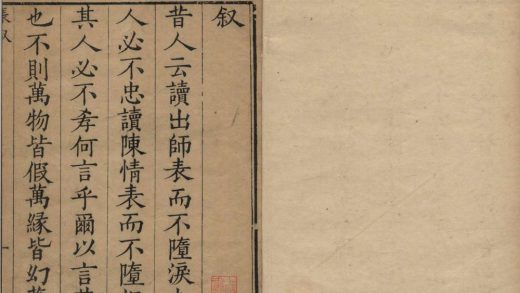 叙
昔人云讀出師表而不墮淚
人必不忠讀陳情表而不墮
其人必不孝何言乎爾以言
也不則萬物皆假萬緣皆幻